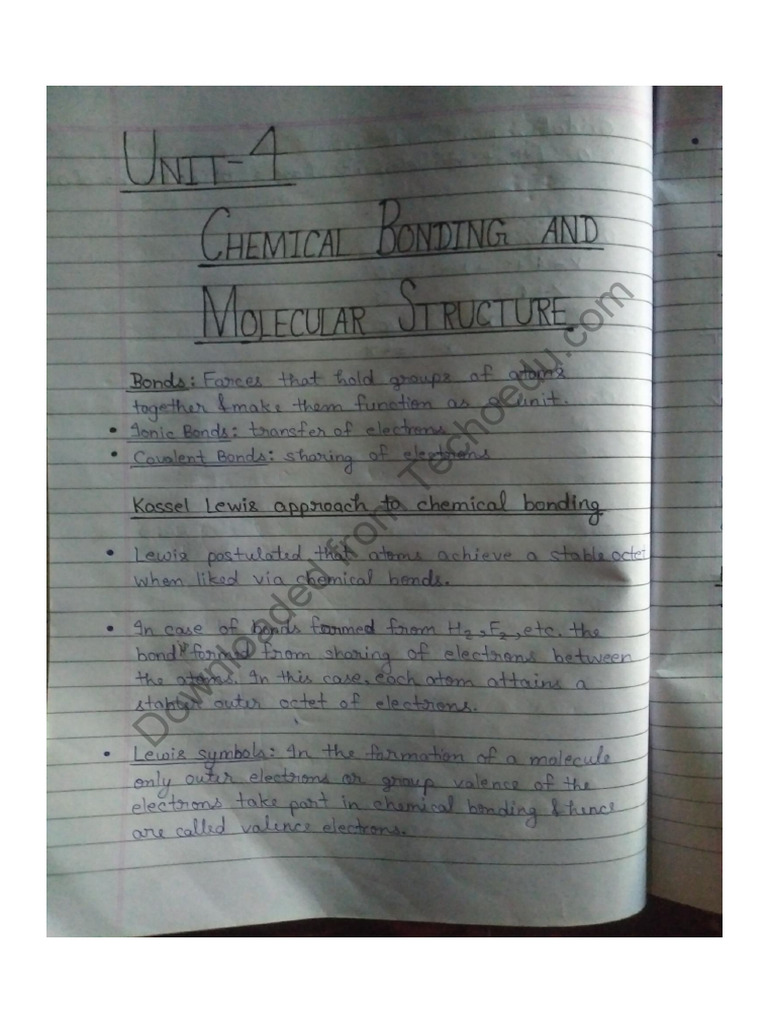 UNIT-4
CHEMICAL BONDING AND
MOLECULAR STRUCTURE
Bonds: Forces that hold groups of atoms
together & make them function as a unit.
• Ionic Bonds: transfer of electrons
• Covalent Bonds: sharing of electrons
Kossel Lewis approach to chemical bonding
• Lewis postulated that atoms achieve a stable octet
when liked via chemical bonds.
• In case of bonds formed from H₂, F₂, etc. the
bond is formed from sharing of electrons between
the atoms. In this case, each atom attains a
stable outer octet of electrons.
• Lewis symbols: In the formation of a molecule
only outer electrons or group valence of the
electrons take part in chemical bonding & hence
are called valence electrons.
Downloaded from Techoedu.com